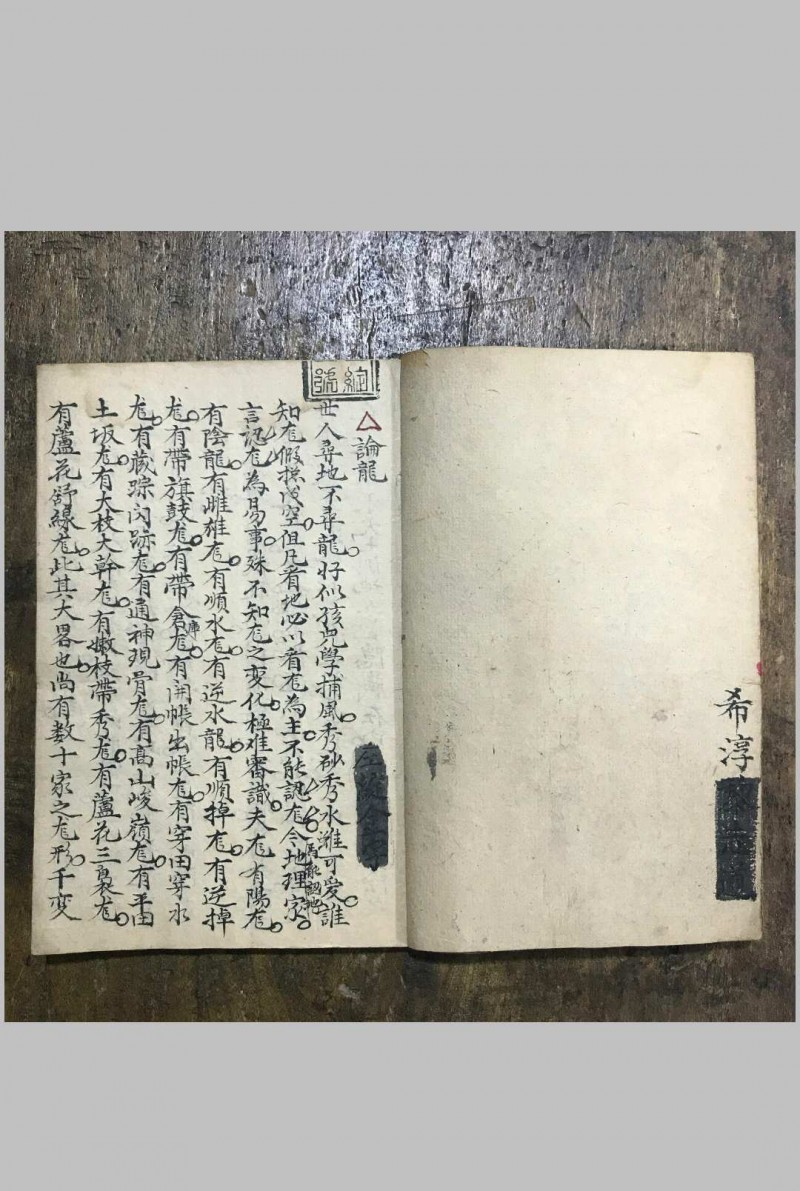 希淳
論龍
世人尋地不尋龍好似孩兒學捕風秀砂秀水雖可愛誰
知尨假揔成空但凡看地必以看尨為主不能認尨
焉能認地
今地理家
言認尨為易事殊不知尨之变化極难審識夫尨有陽尨
有陰龍有雌雄尨有順水尨有逆水龍有順掉尨有逆掉
尨有帶旗鼓尨有帶倉庫尨有開帳出帳尨有穿田穿水
尨有藏踪闪跡尨有通神現骨尨有高山峻嶺尨有平田
土坂尨有大枝大幹尨有嫩枝帶秀尨有蘆花三裊尨
有蘆花舒線尨此其大畧也尚有数十家之尨形千变